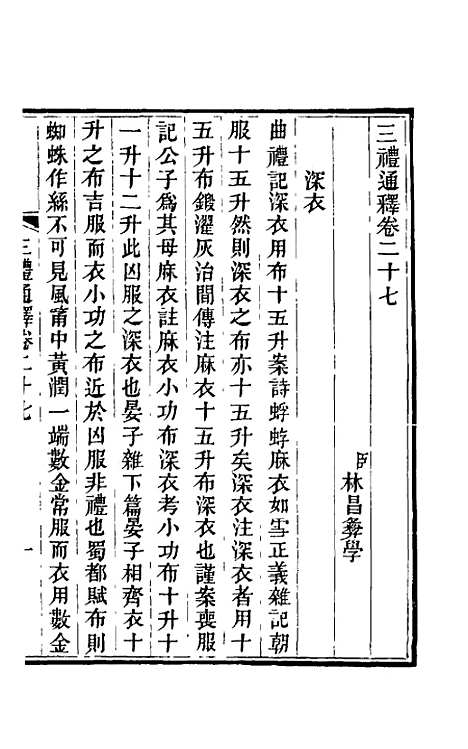 三禮通釋卷二十七
林昌彝學
深衣
曲禮記深衣用布十五升案詩蜉蝣麻衣如雪正義雜記朝
服十五升然則深衣之布亦十五升矣深衣注深衣者用十
五升布鍛濯灰治間傳注麻衣十五升布深衣也謹案喪服
記公子為其母麻衣註麻衣小功布深衣考小功布十升十
一升十二升此凶服之深衣也晏子雜下篇晏子相齊衣十
升之布吉服而衣小功之布近於凶服非禮也蜀都賦布則
蜘蛛作絲不可見風筩中黃潤一端數金常服而衣用數金
三禮通釋卷二十七
一